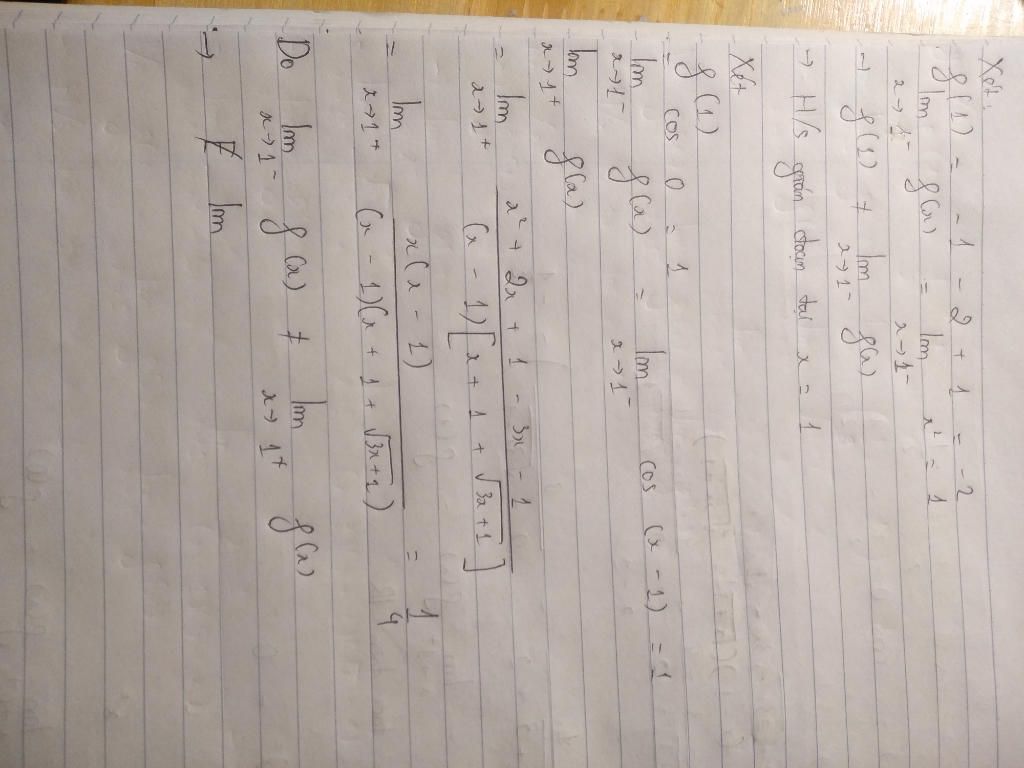 Xét:
f(1) = -1 - 2 + 1 = -2
lim x→1⁻ f(x) = lim x→1⁻ x² = 1
→ f(1) ≠ lim x→1⁻ f(x)
→ H/s gián đoạn tại x = 1
Xét
f(1)
= cos 0 = 1
lim x→1⁻ f(x) = lim x→1⁻ cos (x - 1) = 1
lim x→1⁺ f(x)
= lim x→1⁺ (x² + 2x + 1 - 3x - 1) / ((x - 1)[x + 1 + √(3x+1)])
= lim x→1⁺ x(x - 1) / ((x - 1)(x + 1 + √(3x+1))) = 1/4
Do lim x→1⁻ f(x) ≠ lim x→1⁺ f(x)
→ ∄ lim